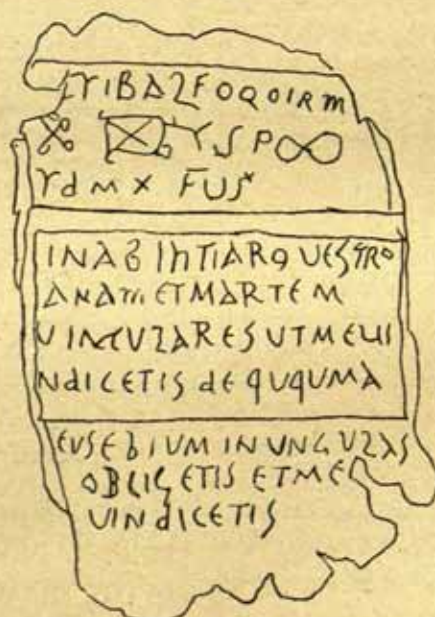 ΥIBAZFOQOIRM
ΥSP∞
ΥdMX FUS
INAB INTIARQUESTRO
ANATM ET MARTEM
UINCULARES UT ME UI
NdICETIS dE QUQUMA
EUSEBIUM IN UNGULAS
OBLIGETIS ET ME
UINdICETIS